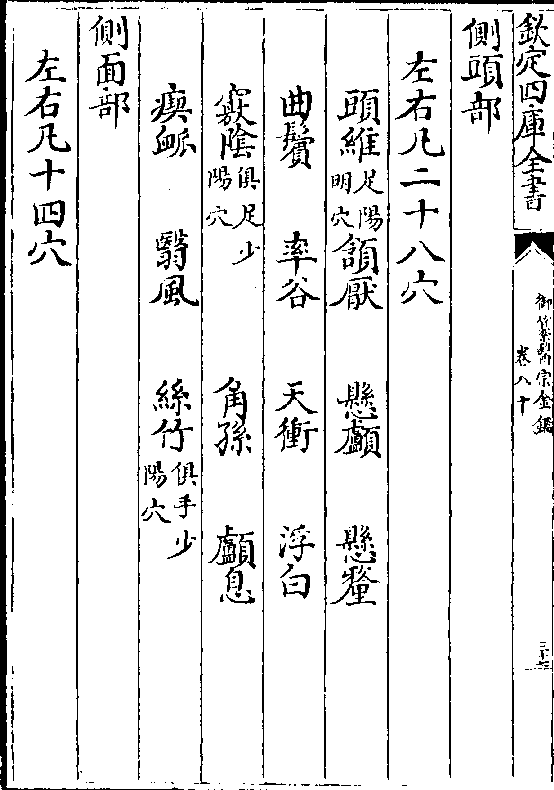 欽定四庫全書
御纂醫宗金鑑
卷八十
側頭部
左右凡二十八穴
頭維足陽明穴 頷厭 懸顱 懸釐
曲鬢 率谷 天衝 浮白
竅陰俱足少陽穴 角孫 顱息
瘈脈 翳風 絲竹俱手少陽穴
側面部
左右凡十四穴